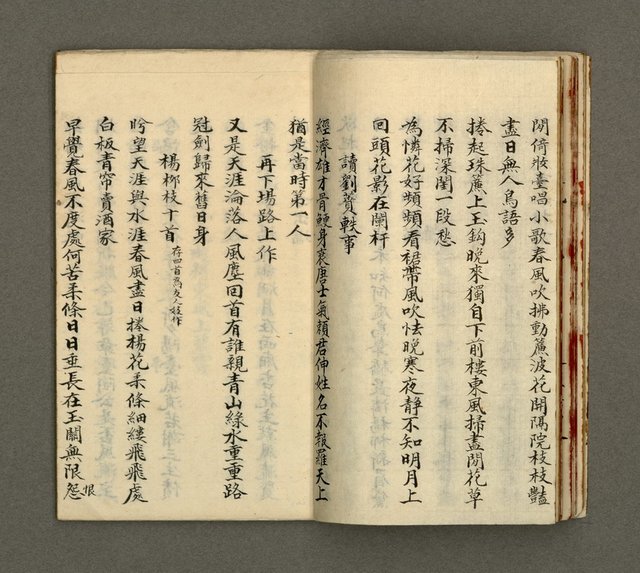 閒倚妝臺唱小歌春風吹拂動簾波花開隔院枝枝豔
盡日無人鳥語多
捲起珠簾上玉鈎晚來獨自下前樓東風掃盡閒花草
不掃深閨一段愁
為憐花好頻頻看裙帶風吹怯晚寒夜靜不知明月上
回頭花影在闌杆
讀劉蕡軼事
經濟雄才骨鯁身裏唐士氣賴君伸姓名不報羅天上
猶是當時第一人
再下場路上作
又是天涯淪落人風塵回首有誰親青山綠水重重路
冠劍歸來舊日身
楊栁枝十首存四首為友人姬作
吟望天涯與水涯春風盡日捲楊花柔條細縷飛飛處
白板青帘賣酒家
早覺春風不度處何苦柔條日日垂長在玉關無限怨恨